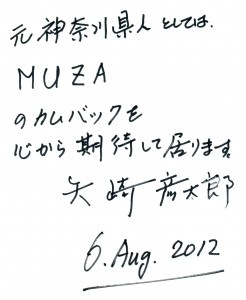 元神奈川県人としては、
MUZA
のカムバックを
心から期待して居ります。
矢崎彦太郎
6. Aug. 2012